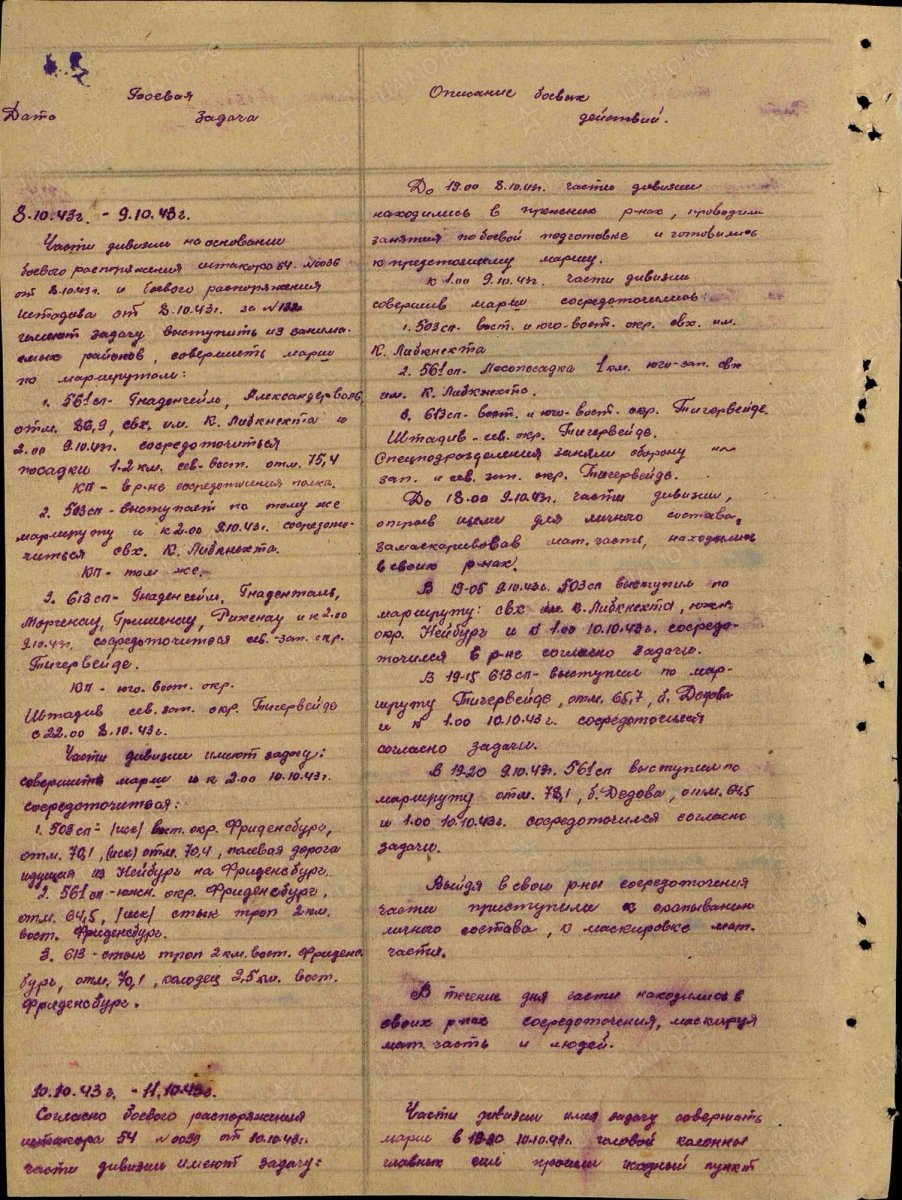 Дата
Боевая
задача
8.10.43г. - 9.10.43г.
Части дивизии на основании
боевого распоряжения штакора 54 - №0036
от 8.10.43г. и боевого распоряжения
штадива от 8.10.43г. за
имеют задачу выступить из занима-
емых районов, совершить марш
по маршрутам:
1. 561сп - Гнаденгейм, Александерволь,
отм. 86,9, свх. им. К. Либкнехта и
2.00 9.10.43г. сосредоточиться
посадки 1-2 км. сев-вост. отм. 75,4
КП - в р-не сосредоточения полка.
2. 503сп - выступает по тому же
маршруту и к 2.00 9.10.43г. сосредото-
читься свх. К. Либкнехта.
КП - там же.
3. 613сп - Гнаденгейм, Гнаденталь,
Моргенау, Рикенау и к 2.00
9.10.43г. сосредоточиться сев.-зап. окр.
Тигервейде.
КП - юго-вост. окр.
Штадив сев. зап. окр. Тигервейде
с 22.00 8.10.43г.
Части дивизии имеют задачу:
совершить марш и к 2.00 10.10.43г.
сосредоточиться:
1. 503сп - /иск/ вост. окр. Фриденсбург,
отм. 70,1, (иск) отм. 70,4, полевая дорога
идущая из Нейбург на Фриденсбург.
2. 561сп - южн. окр. Фриденсбург,
отм. 64,5, /иск/ стык троп 2 км.
вост. Фриденсбург.
3. 613 - стык троп 2 км. вост. Фриденс
бург, отм. 70,1, колодец 2,5 км. вост.
Фриденсбург.
10.10.43г. - 11.10.43г.
Согласно боевого распоряжения
штакора 54 №0039 от 10.10.43г.
части дивизии имеют задачу:
Описание боевых
действий.
До 19.00 8.10.43г. части дивизии
находились в прежних р-нах, проводили
занятия по боевой подготовке и готовились
к предстоящему маршу.
К 1.00 9.10.43г. части дивизии
совершив марш сосредоточились:
1. 503сп - вост. и юго-вост. окр. свх. им.
К. Либкнехта
2. 561сп - Лесопосадка 1 км. юго-зап. свх
им. К. Либкнехта.
3. 613сп - вост. и юго-вост. окр. Тигервейде.
Штадив - сев. окр. Тигервейде.
Спецподразделения заняли оборону
зап. и сев. зап. окр. Тигервейде.
До 18.00 9.10.43г. части дивизии,
отрыв щели для личного состава,
замаскировав мат. часть, находились
в своих р-нах.
В 19-05 9.10.43г. 503сп выступил по
маршруту: свх им. К. Либкнехта, южн.
окр. Нейбург и к 1.00 10.10.43г. сосредо-
точился в р-не согласно задачи.
В 19-15 613сп - выступил по мар-
шруту Тигервейде, отм. 65,7, б. Дедова
и к 1.00 10.10.43г. сосредоточился
согласно задачи.
В 19-20 9.10.43г. 561сп выступил по
маршруту отм. 78,1, б. Дедова, отм. 64,5
и 1.00 10.10.43г. сосредоточился согласно
задачи.
Выйдя в свои р-ны сосредоточения
части приступили к окапыванию
личного состава, к маскировке мат.
части.
В течение дня части находились в
своих р-нах сосредоточения, маскируя
мат. часть и людей.
Части дивизии имея задачу совершать
марш в 10.10.43г. головой колонны
главных сил прошли исходный пункт